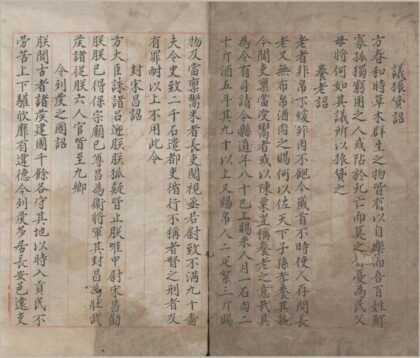 議振貸詔
方春和時草木群生之物皆有以自樂而吾百姓鰥
寡孤獨窮困之人或阽於死亡而莫之憂為民父
母將何如其議所以振貸之
養老詔
老者非帛不煖非肉不飽今歲首不時使人存問長
老又無布帛酒肉之賜何以佐天下子孫孝養其親
今聞吏稟當受鬻者或以陳粟豈稱養老之意哉具
為令有司請令縣道年八十已上賜米人月一石肉二
十斤酒五斗其九十以上又賜帛人二疋絮三斤賜
物及當稟鬻米者長吏閱視丞若尉致不滿九十嗇
夫令史致二千石遣都吏循行不稱者督之刑者及
有罪耐以上不用此令
封宋昌詔
方大臣誅諸呂迎朕朕狐疑皆止朕唯中尉宋昌勸
朕朕已得保宗廟已尊昌為衛將軍其封昌為壯武
侯諸從朕六人官皆至九卿
令列侯之國詔
朕聞古者諸侯建國千餘各守其地以時入貢民不
勞苦上下驩欣靡有違德今列侯多居長安邑遠吏